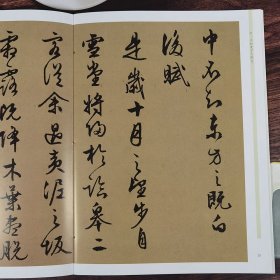 中不知東方之既白
後賦
是歲十月之望步自
雪堂將歸於臨皋二
客從余過黃泥之坂
霜露既降木葉盡脫